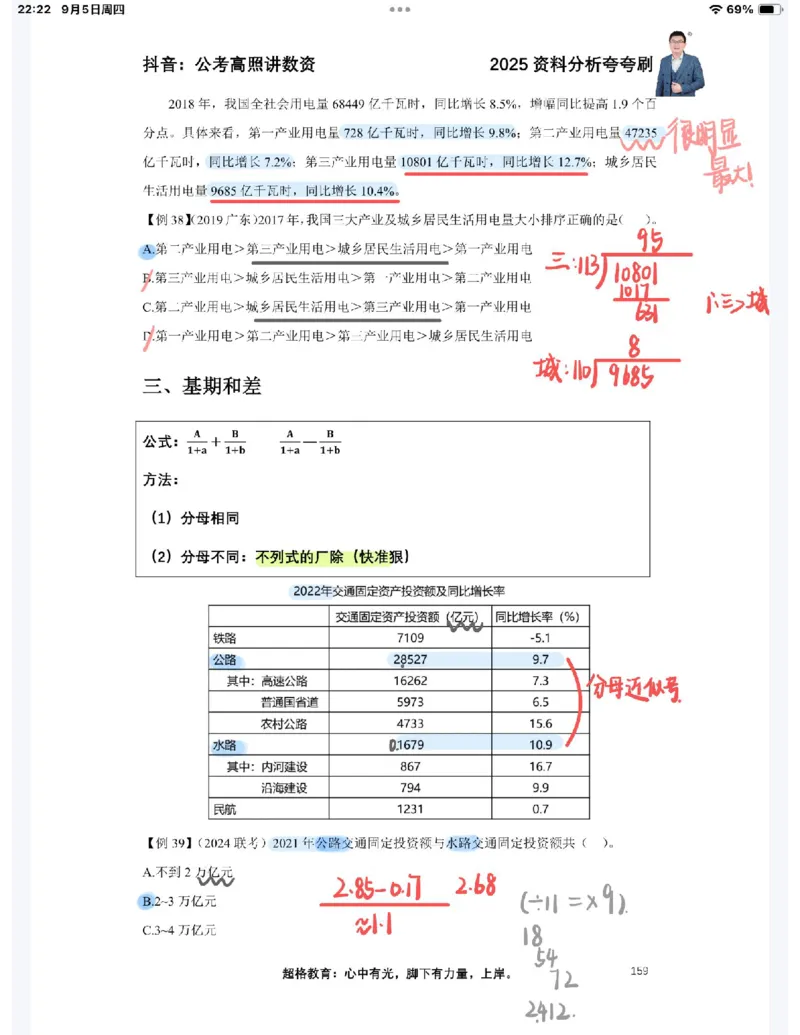 22:22 9月5日周四
69%
抖音：公考高照讲数资
2025 资料分析夸夸刷
2018 年，我国全社会用电量 68449 亿千瓦时，同比增长 8.5%，增幅同比提高 1.9 个百
分点。具体来看，第一产业用电量 728 亿千瓦时，同比增长 9.8%；第二产业用电量 47235
亿千瓦时，同比增长 7.2%；第三产业用电量 10801 亿千瓦时，同比增长 12.7%；城乡居民
生活用电量 9685 亿千瓦时，同比增长 10.4%。
很明显
最大！
【例 38】（2019 广东）2017 年，我国三大产业及城乡居民生活用电量大小排序正确的是（ ）。
A.第二产业用电＞第三产业用电＞城乡居民生活用电＞第一产业用电
B.第三产业用电＞城乡居民生活用电＞第一产业用电＞第二产业用电
C.第二产业用电＞城乡居民生活用电＞第三产业用电＞第一产业用电
D.第一产业用电＞第二产业用电＞第三产业用电＞城乡居民生活用电
95
三:113
10801
1017
631
∴三>城
8
城:110
9685
三、基期和差
公式： A/1+a + B/1+b A/1+a — B/1+b
方法：
（1）分母相同
（2）分母不同：不列式的厂除（快准狠）
2022年交通固定资产投资额及同比增长率
交通固定资产投资额（亿元） 同比增长率（%）
铁路 7109 -5.1
公路 28527 9.7
其中：高速公路 16262 7.3
普通国省道 5973 6.5
农村公路 4733 15.6
水路 0.1679 10.9
其中：内河建设 867 16.7
沿海建设 794 9.9
民航 1231 0.7
分母近似号
【例 39】（2024 联考）2021 年公路交通固定投资额与水路交通固定投资额共（ ）。
A.不到 2 万亿元
B.2~3 万亿元
C.3~4 万亿元
2.85-0.17 2.68
≈1.1
(÷11=×9).
18
54
72
2412.
超格教育：心中有光，脚下有力量，上岸。
159